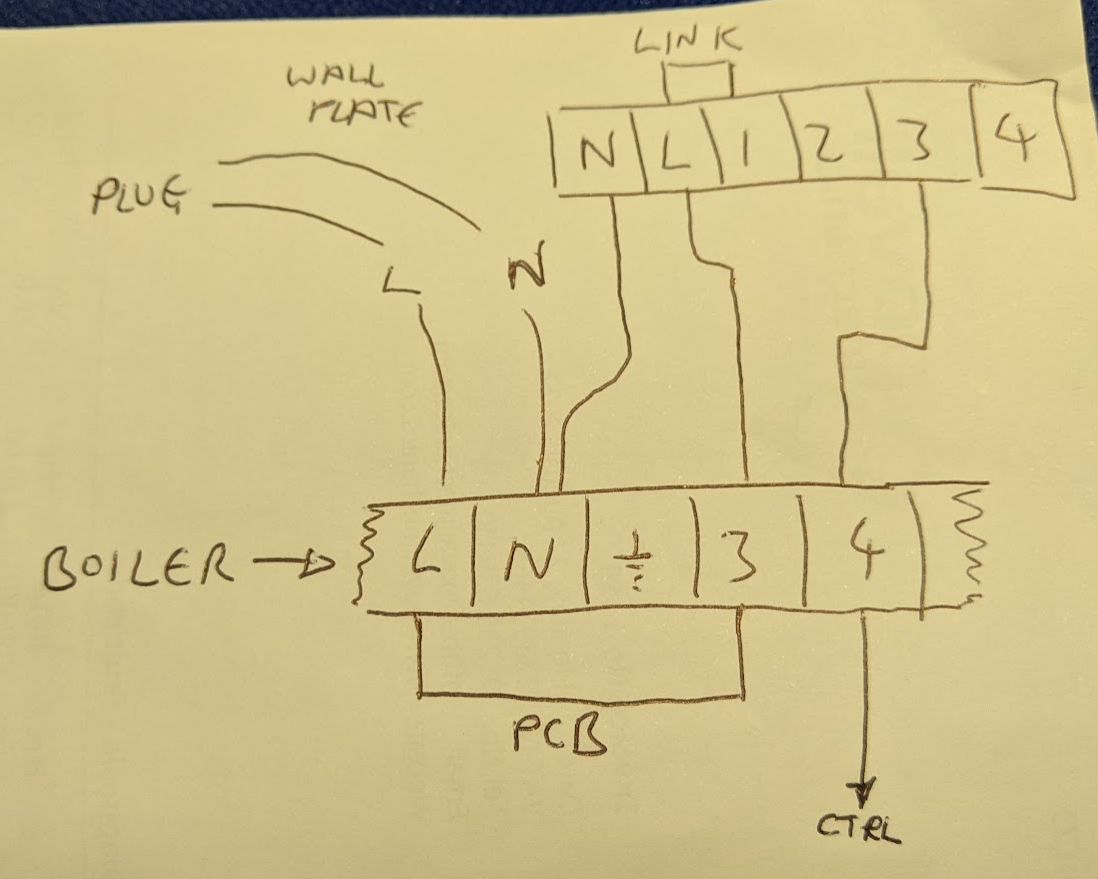 LINK
WALL
PLATE
N L 1 2 3 4
PLUG
L N
BOILER → L N ⏚ 3 4
PCB
CTRL